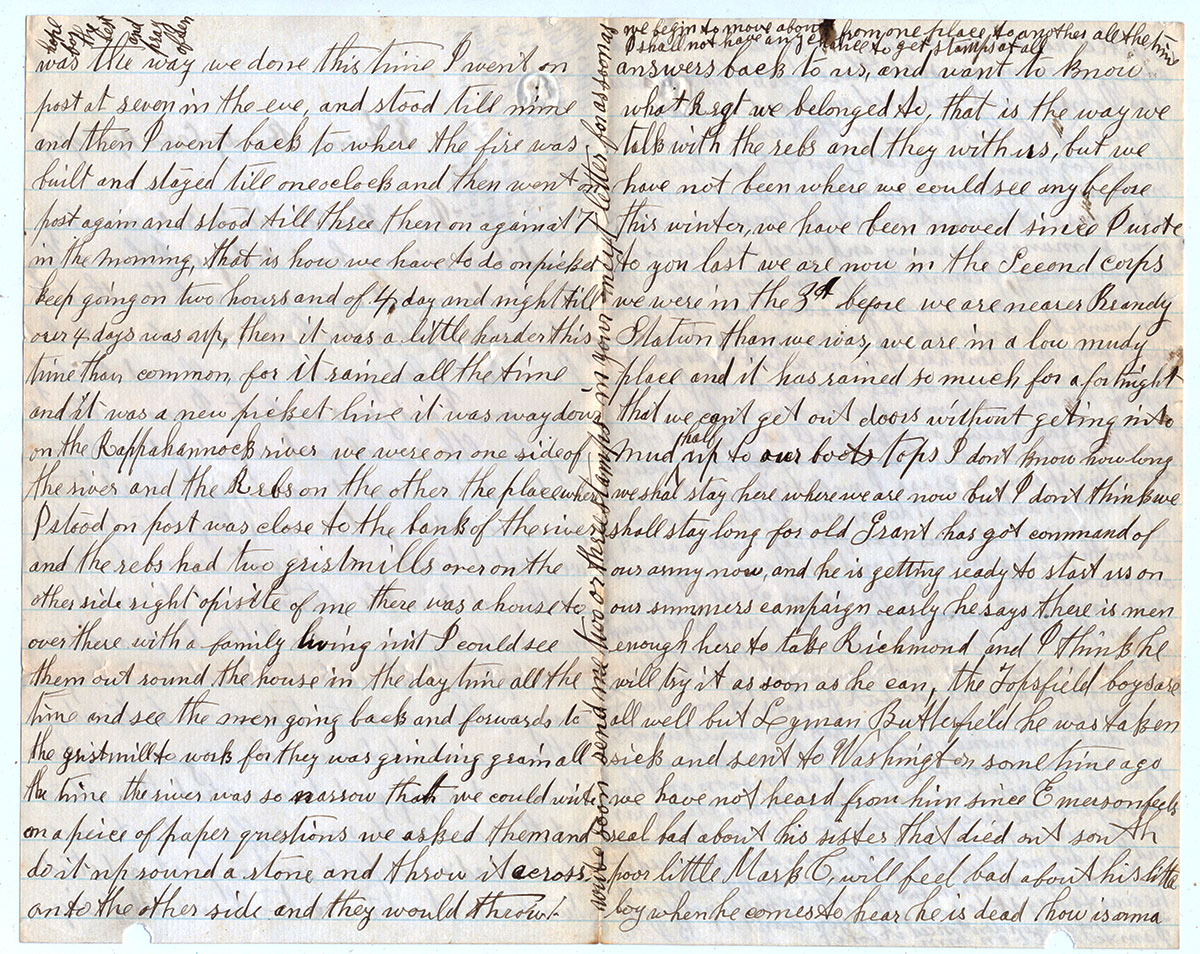 hope
for
the
best
and
pray
often
was the way we done this time I went on
post at seven in the eve, and stood till nine
and then I went back to where the fire was
built and stayed till oneoclock and then went on
post again and stood till three then on again at 7
in the morning, that is how we have to do on picket
keep going on two hours and of 4, day and night till
our 4 days was up, then it was a little harder this
time than common, for it rained all the time
and it was a new picket line it was way down
on the Rappahannock river we were on one side of
the river and the Rebs on the other the place where
I stood on post was close to the bank of the river
and the rebs had two gristmills over on the
other side right opisite of me there was a house to
over there with a family living init I could see
them out round the house in the day time all the
time and see the men going back and forwards to
the gristmill to work for they was grinding grain all
the time the river was so narrow that we could write
on a peice of paper questions we asked them and
do it up round a stone and throw it across
on to the other side and they would throw
write soon send me two or three stamps in your next letter for as soon as
we begin to move about from one place to another all the time
I shall not have any chance to get stamps at all
answers back to us, and want to know
what Regt we belonged to, that is the way we
talk with the rebs and they with us, but we
have not been where we could see any before
this winter, we have been moved since I wrote
to you last we are now in the Second corps
we were in the 3d before we are nearer Brandy
Station than we was, we are in a low mudy
place and it has rained so much for a fortnight
that we cant get out doors without geting in to
mud half up to our boots tops I don't know how long
we shal stay here where we are now but I dont think we
shall stay long for old Grant has got command of
our army now, and he is getting ready to start us on
our summers campaign early he says there is men
enough here to take Richmond and I think he
will try it as soon as he can, the Topsfield boys are
all well but Lyman Butterfield he was taken
sick and sent to Washington some time ago
we have not heard from him since Emerson feels
real bad about his sister that died out south
poor little Mark C, will feel bad about his little
boy when he comes to hear he is dead how is